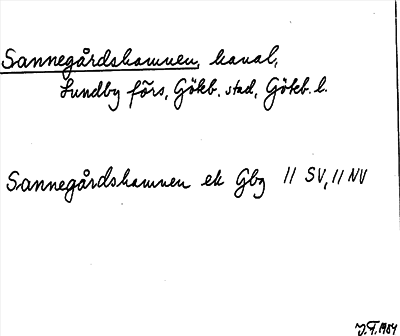 Sannegårdshamnen, kanal,
Lundby förs, Göteb. stad, Göteb. l.
Sannegårdshamnen ek Gbg // SV, // NV
1984